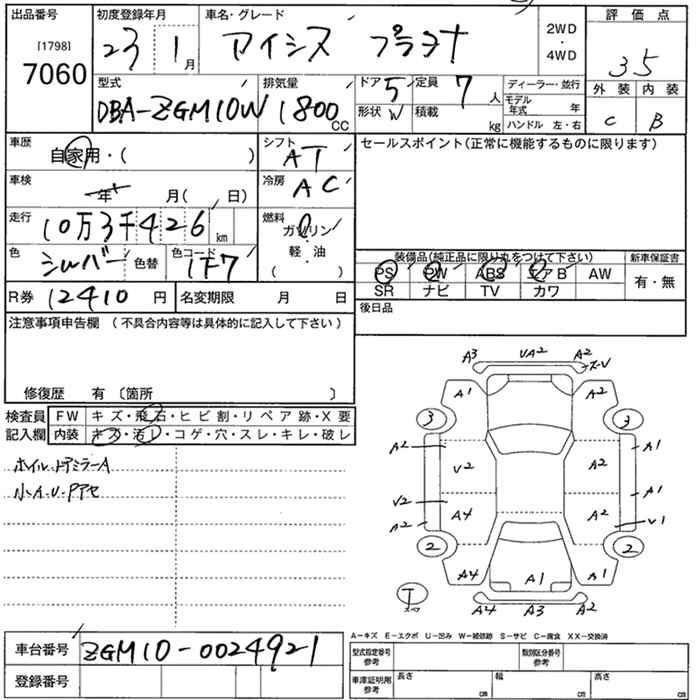 出品番号 初度登録年月 車名・グレード 2WD 評価点
[1798] 23 1月 アイシス プラタナ ・ 3 5
7060 4WD
型式 排気量 ドア 5 定員 7人 ディーラー・並行 外装 内装
DBA-ZGM10W 1800CC 形状 W 積載 kg モデル年式 年 C B
ハンドル 左・右
車歴 自家用・( ) シフト AT セールスポイント(正常に機能するものに限ります)
車検 年 月( 日) 冷房 AC
走行 10万3千426km 燃料 ガソリン
色 シルバー 色替 色コード 1F7 軽・油 装備品(純正品に限り丸をつけて下さい) 新車保証書
( ) PS PW ABS エアB AW 有・無
R券 12410円 名変期限 月 日 SR ナビ TV カワ
注意事項申告欄(不具合内容等は具体的に記入して下さい) 後日品
修復歴 有〔箇所 〕
検査員 FW キズ・飛石・ヒビ割・リペア跡・X要
記入欄 内装 キズ・汚レ・コゲ・穴・スレ・キレ・破レ
ホイル・ドアミラーA
小A・U・Pアセ
A3 UA2 A2
A1 A2
3 3
A2 V2 A2 A1
V2 A4 A2 A1
A2 V1
2 2
A4 A1 A1
T
A4 A3 A2
A-キズ E-エクボ U-凹み W-補修跡 S-サビ C-腐食 XX-交換済
車台番号 ZGM10-0024921 型式指定番号 参考 類別区分番号 参考
登録番号 車庫証明用 参考 長さ cm 幅 cm 高さ cm